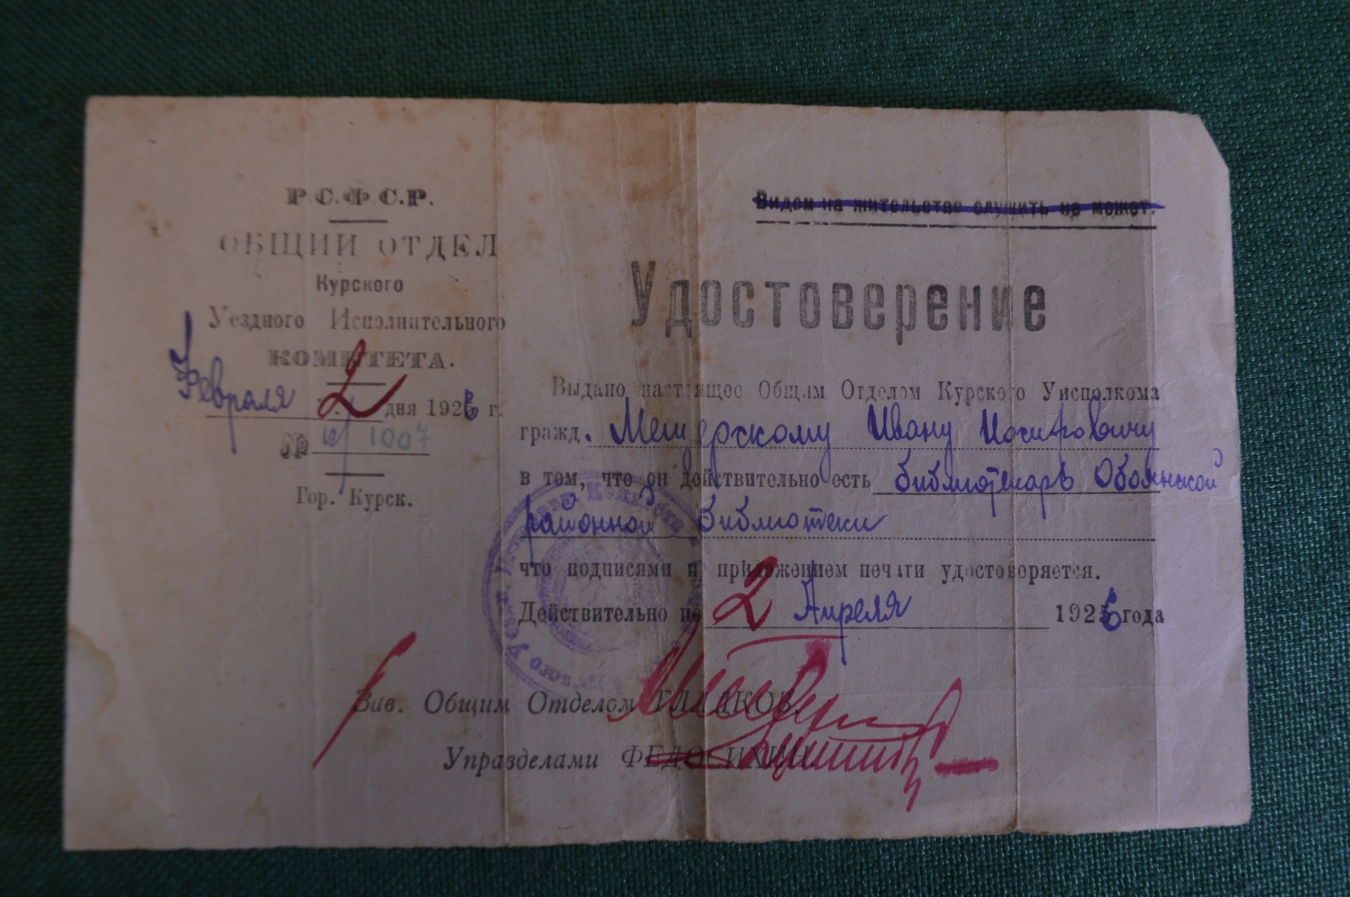 Р.С.Ф.С.Р.
ОБЩИЙ ОТДЕЛ
Курского
Уездного Исполнительного
КОМИТЕТА.
Февраля 2 дня 1926 г.
№ 1007
Гор. Курск.
Видом на жительство служить не может.
Удостоверение
Выдано настоящее Общим Отделом Курского Уисполкома
гражд. Мещерскому Ивану Иосифовичу
в том, что он действительно есть библиотекарь Обоянской
районной библиотеки
что подписями и приложением печати удостоверяется.
Действительно по 2 Апреля 1926 года
Зав. Общим Отделом ГЛАДКОВ.
Управделами